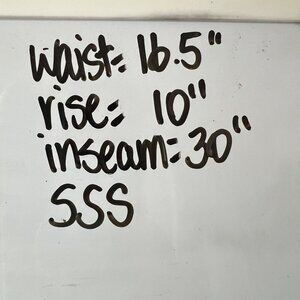 waist: 16.5"
rise: 10"
inseam: 30"
SSS